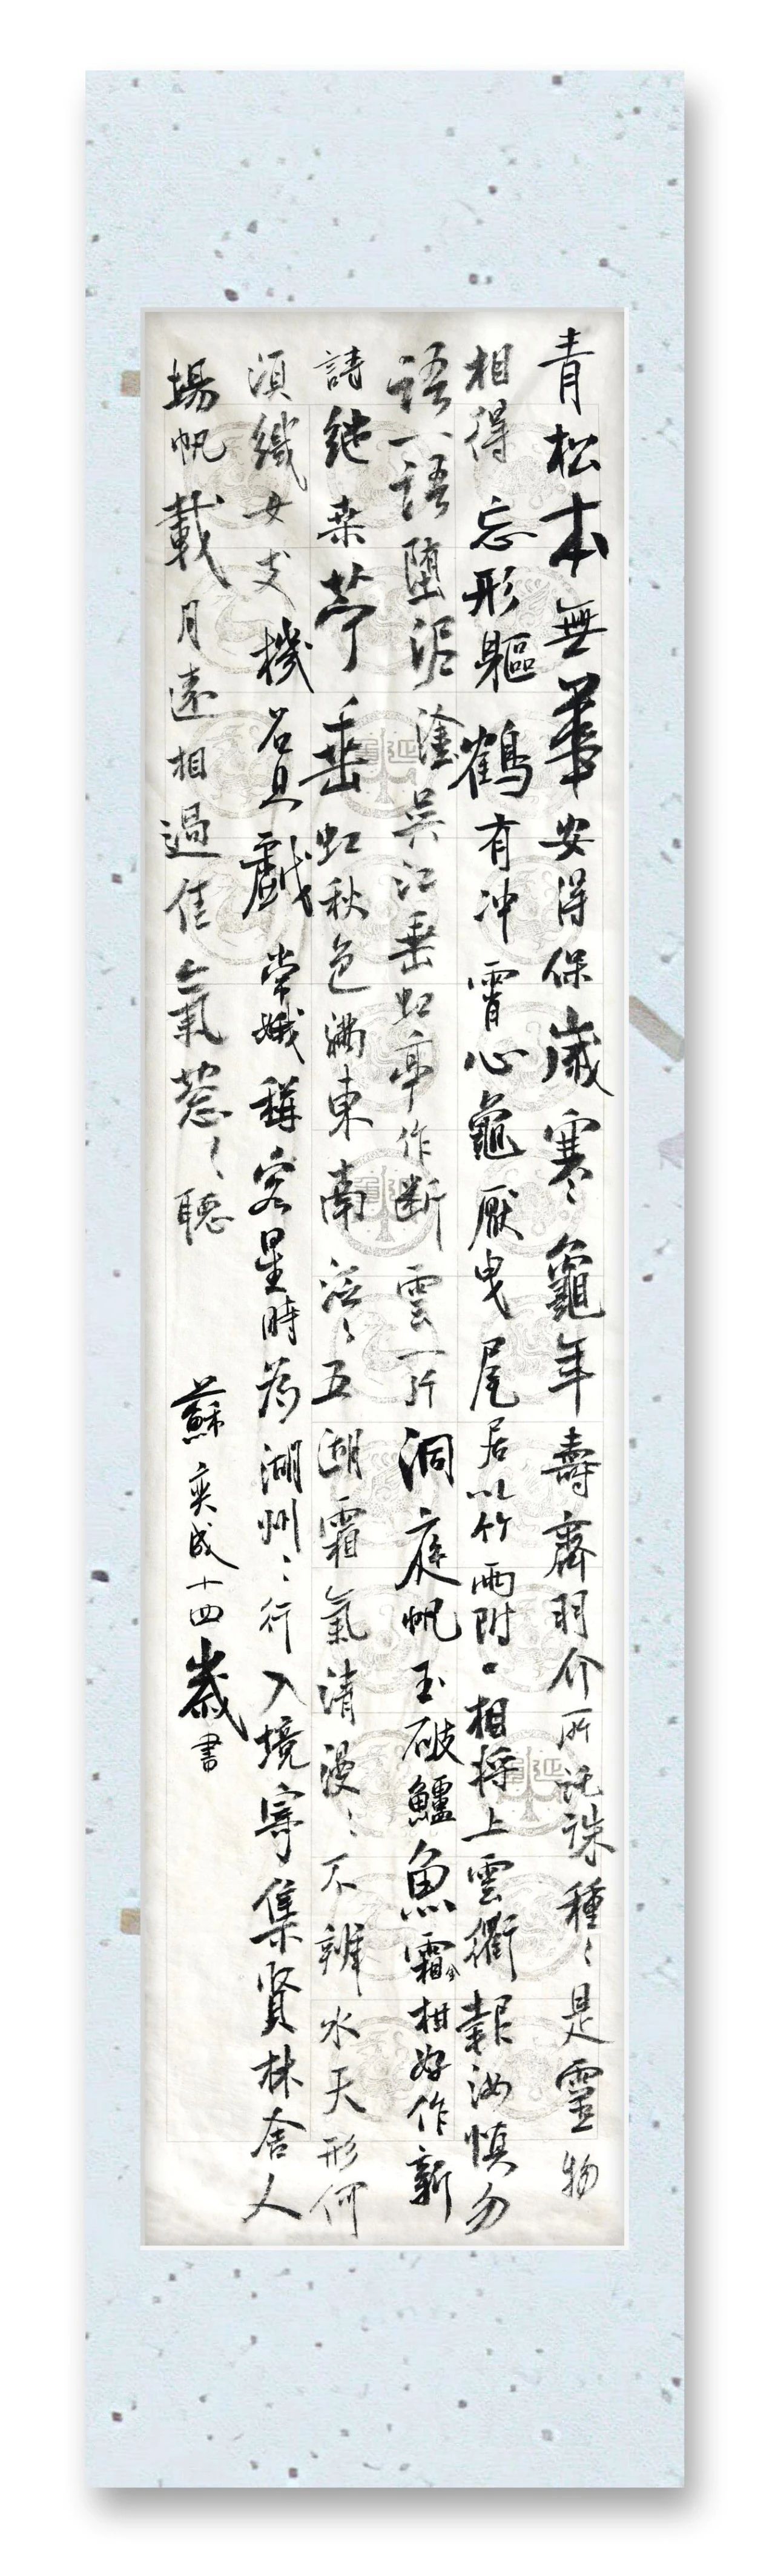 青松本無華安得保歲寒龜年壽齊羽介所託誅種〻是靈物
相得忘形軀鶴有冲霄心龜厭曳尾居以竹兩附口相將上雲衢報汝慎勿
語一語墮泥塗吳江垂虹亭作斷雲一片洞庭帆玉破鱸魚霜金柑好作新
詩繼桑苧垂虹秋色滿東南泛〻五湖霜氣清漫〻不辨水天形何
須織女支機石且戲常娥稱客星時為湖州之行入境寄集賢林舍人
揚帆載月遠相過佳氣蔥〻聽
蘇奕成十四歲書